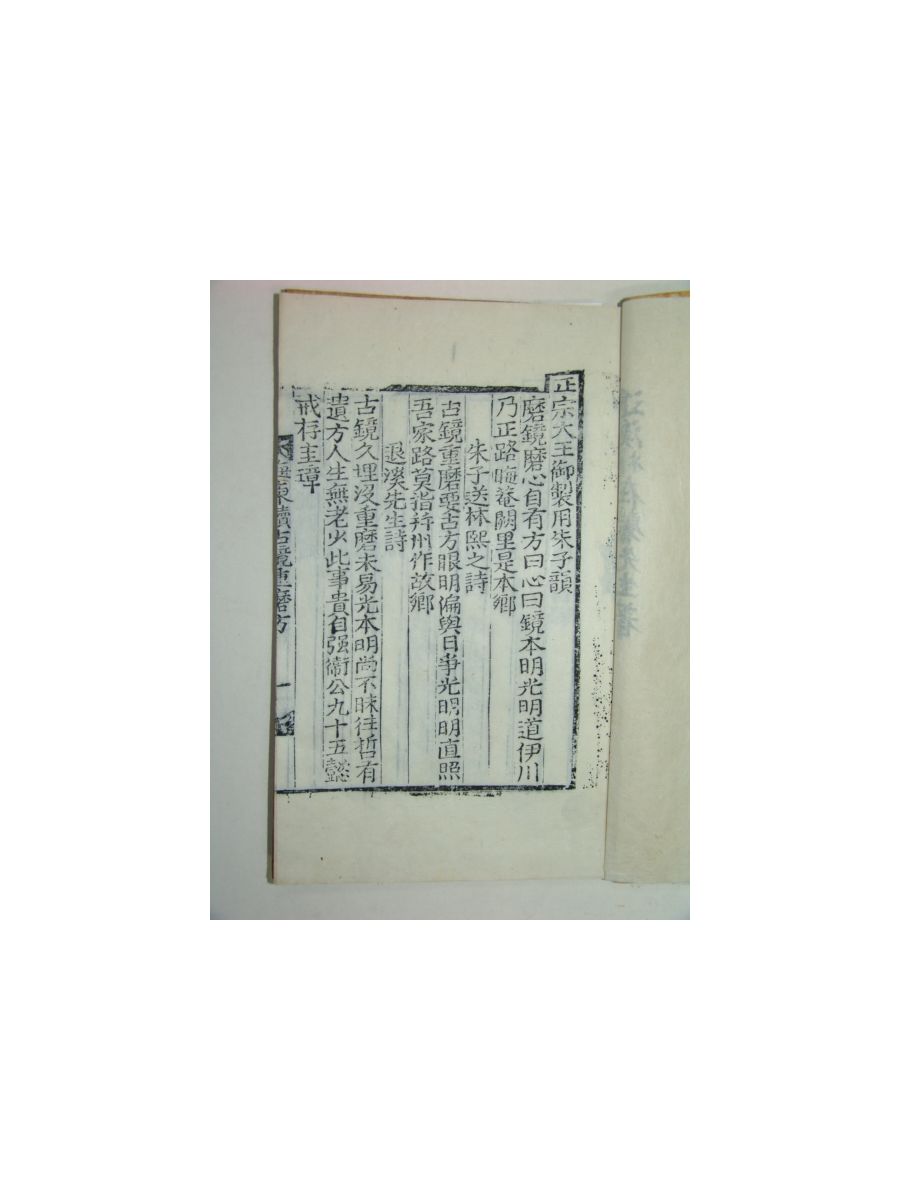 正宗大王御製用朱子韻
磨鏡磨心自有方曰心曰鏡本明光明道伊川
乃正路晦菴闕里是本鄉
朱子送林熙之詩
古鏡重磨要古方眼明偏與日爭光明明直照
吾家路莫指幷州作故鄉
退溪先生詩
古鏡久埋沒重磨未易光本明尚不昧往哲有
遺方人生無老少此事貴自强衛公九十五懿
戒存圭璋
海東續古鏡重磨方
一